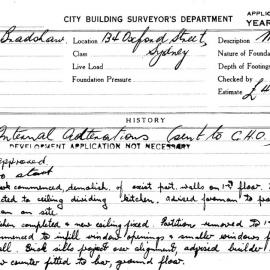 CITY BUILDING SURVEYOR'S DEPARTMENT
APPLIC
YEAR
Bradshaw, Location 134 Oxford Street, Description M
Class Sydney Nature of Founda
Live Load Depth of Footings
Foundation Pressure Checked by
Estimate £4
HISTORY
Internal Alterations (sent to C.H.O.
DEVELOPMENT APPLICATION NOT NECESSARY
approved
to start
commenced, demolish. of exist part. walls on 1st floor.
ted to ceiling dividing kitchen, advised foreman to
on site
tchen completed & new ceiling fixed. Partition removed to 1
menced to infill window openings & smaller windows f
all. Brick sills project over alignment, advised builder
w counter fitted to bar, ground floor.